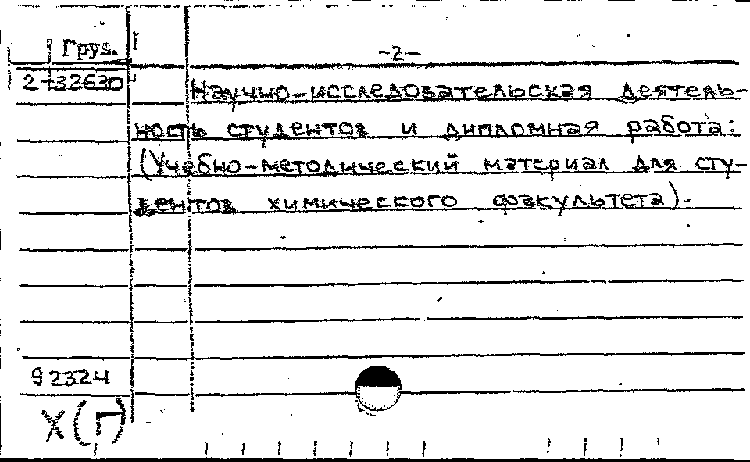 Груз.
-2-
2-32630
Научно-исследовательская деятель-
ность студентов и дипломная работа:
(Учебно-методический материал для сту-
дентов химического факультета).
92324
Х(Г)